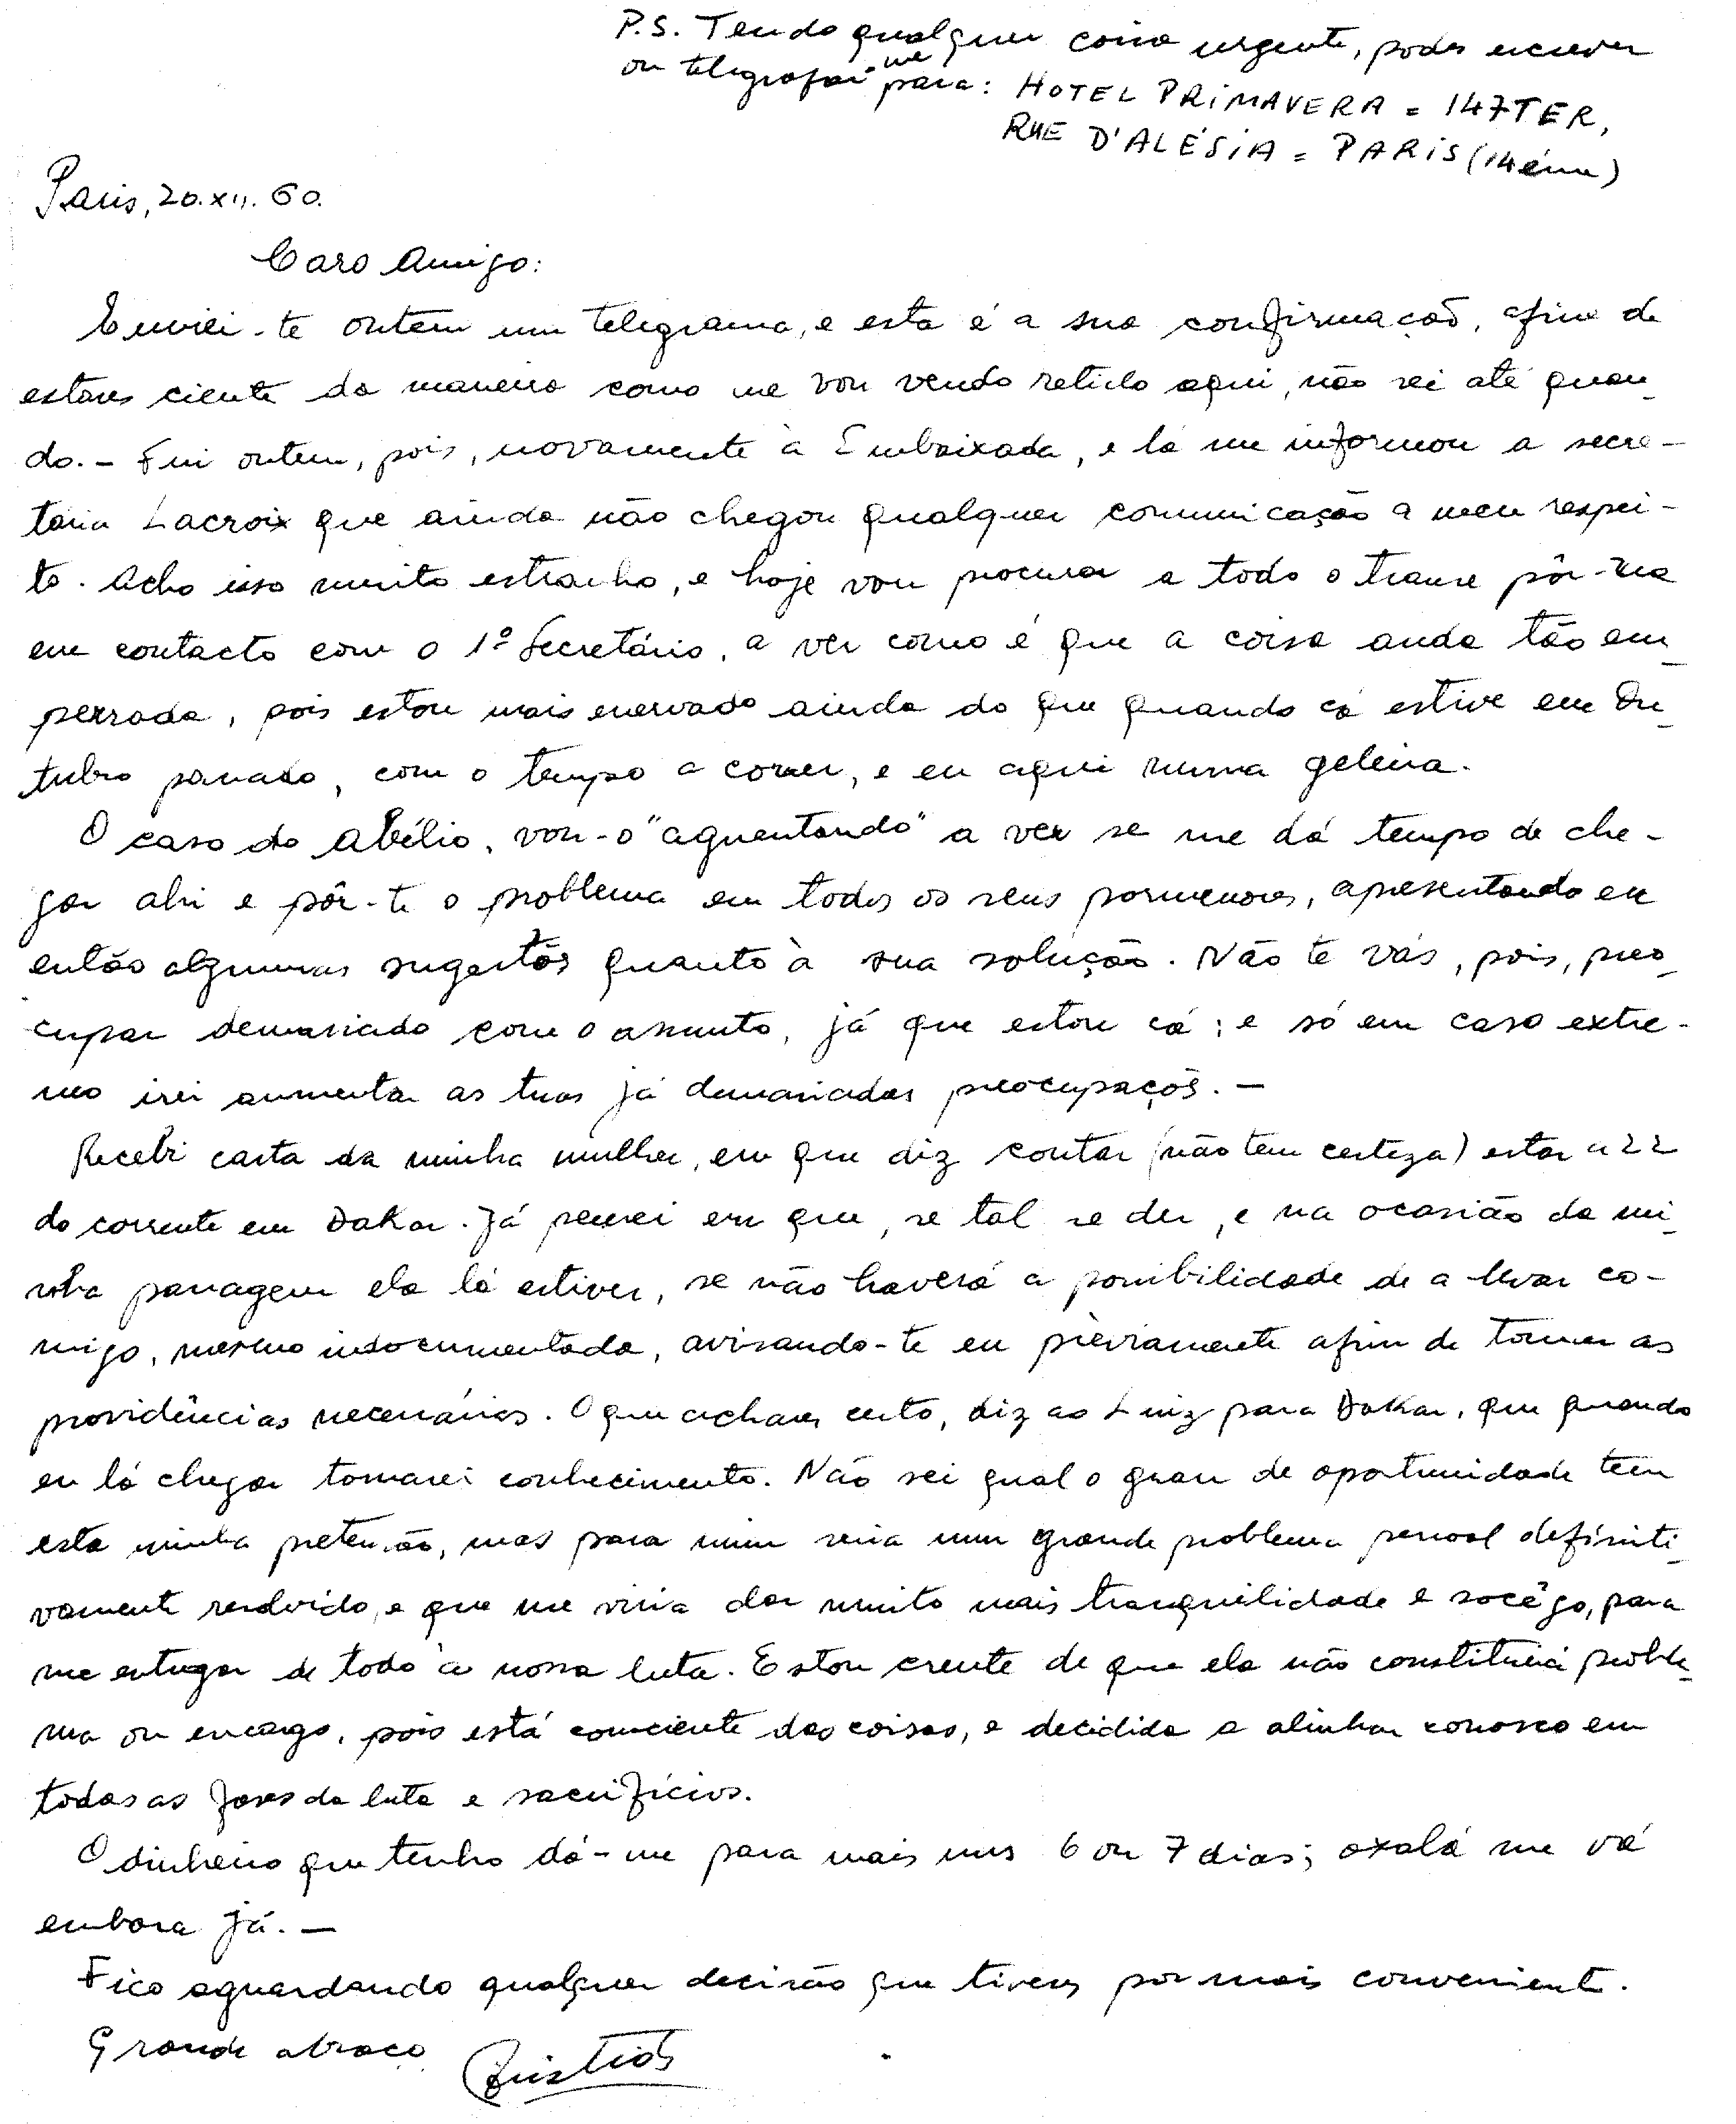 P.S. Tendo qualquer coisa urgente, podes escrever
ou telegrafar-me para: HOTEL PRIMAVERA = 147TER,
RUE D'ALÉSIA = PARIS (14éme)
Paris, 20.XII.60.
Caro Amigo:
Enviei-te ontem um telegrama, e esta é a sua confirmação, afim de
estares ciente da maneira como me vou vendo retido aqui, não sei até quan-
do. - Fui ontem, pois, novamente à Embaixada, e lá me informou a secre-
tária Lacroix que ainda não chegou qualquer comunicação a meu respei-
to. Acho isso muito estranho, e hoje vou procurar a todo o transe pôr-me
em contacto com o 1º Secretário, a ver como é que a coisa anda tão em-
perrada, pois estou mais enervado ainda do que quando cá estive em Ou-
tubro passado, com o tempo a correr, e eu aqui numa geleira.
O caso do Abílio, vou-o "aguentando" a ver se me dá tempo de che-
gar ahi e pôr-te o problema em todos os seus pormenores, apresentando eu
então algumas sugestões quanto à sua solução. Não te vás, pois, preo-
cupar demasiado com o assunto, já que estou cá; e só em caso extre-
mo irei aumentar as tuas já demasiadas preocupações. -
Recebi carta da minha mulher, em que diz contar (não tem certeza) estar a 22
do corrente em Dakar. Já pensei em que, se tal se der, e na ocasião da mi-
nha passagem ela lá estiver, se não haverá a possibilidade de a levar co-
migo, mesmo indocumentada, avisando-te eu previamente afim de tomar as
providências necessárias. O que achares certo, diz ao Luiz para Dakar, que quando
eu lá chegar tomarei conhecimento. Não sei qual o grau de oportunidade tem
esta minha pretensão, mas para mim seria um grande problema pessoal definiti-
vamente resolvido, e que me viria dar muito mais tranquilidade e socêgo, para
me entregar de todo à nossa luta. Estou crente de que ela não constituirá proble-
ma ou encargo, pois está consciente das coisas, e decidida a alinhar conosco em
todas as fases da luta e sacrifícios.
O dinheiro que tenho dá-me para mais uns 6 ou 7 dias; oxalá me vá
embora já. -
Fico aguardando qualquer decisão que tiveres por mais conveniente.
Grande abraço